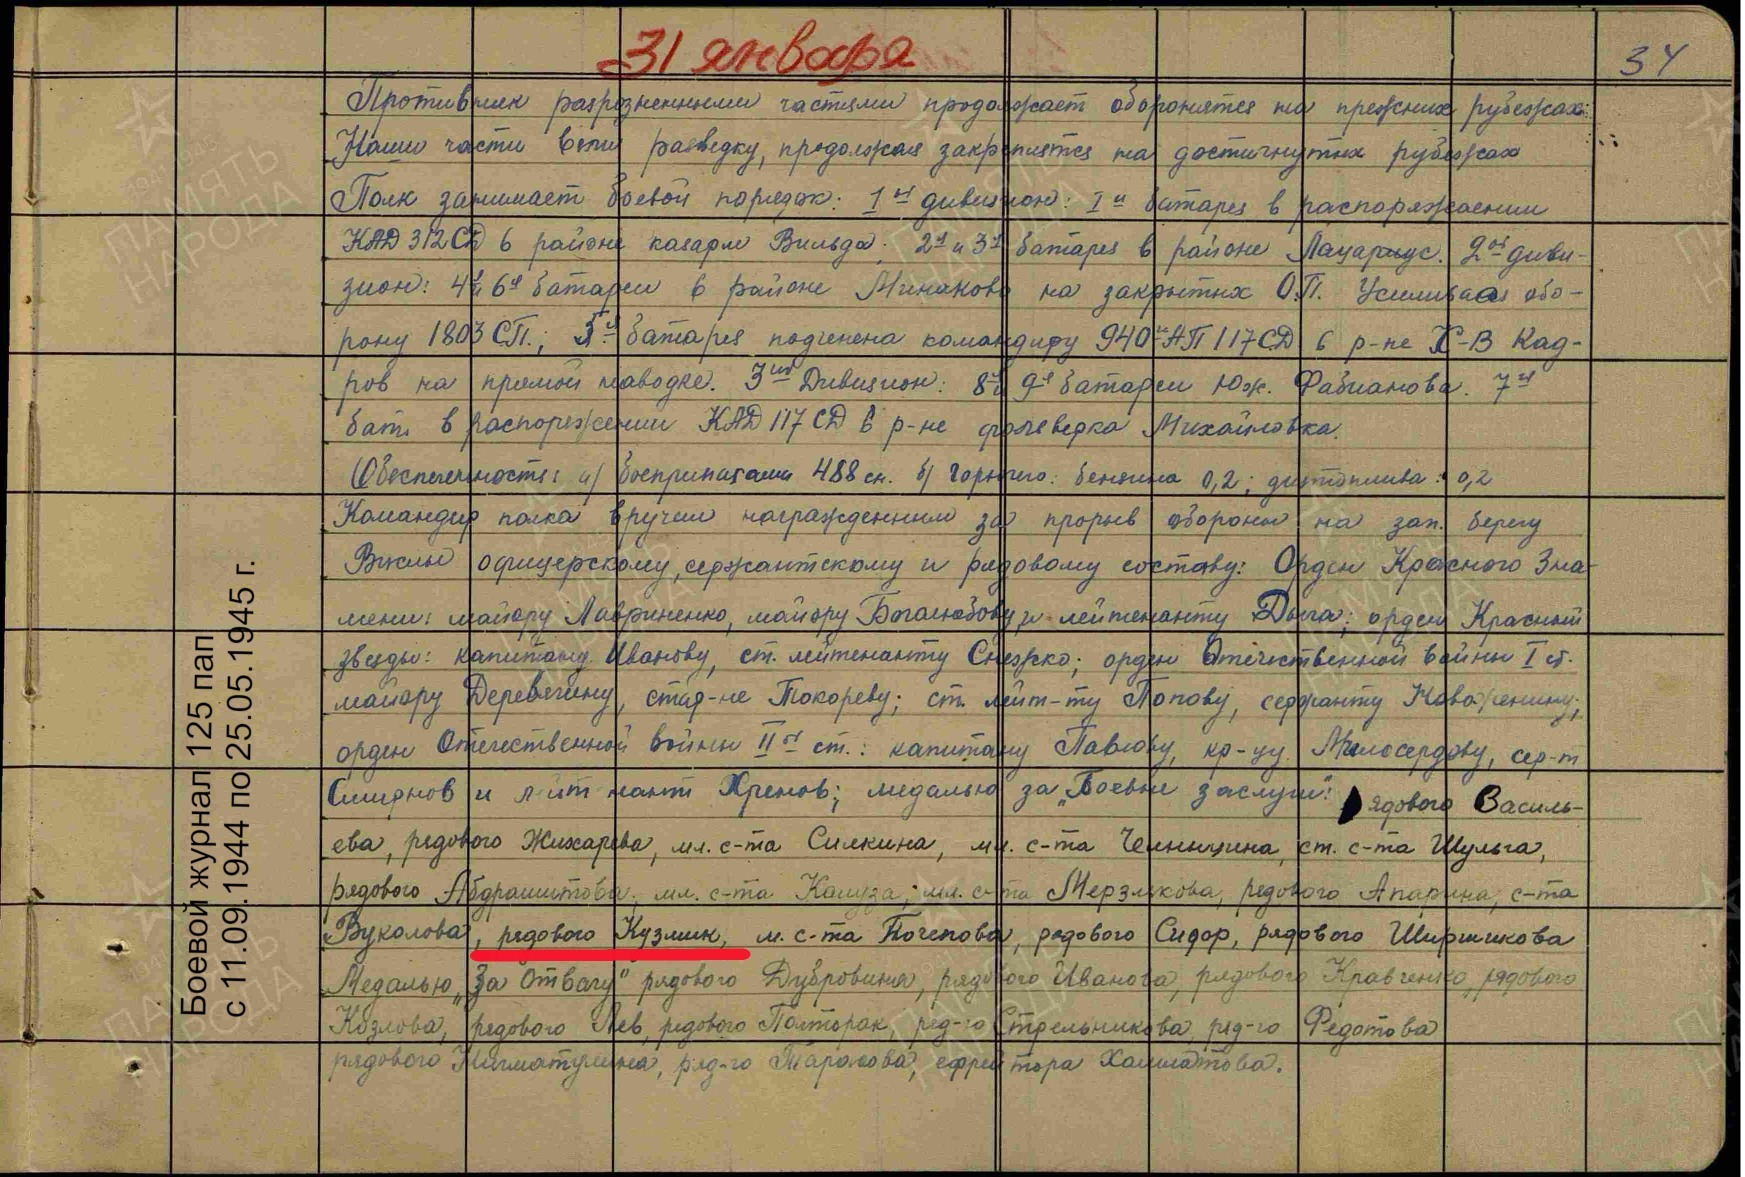 31 января
34
Противник разрозненными частями продолжает обороняться на прежних рубежах:
Наши части вели разведку, продолжая закрепиться на достигнутых рубежах
Полк занимает боевой порядок: 1ый дивизион: 1я батарея в распоряжении
КАД 312 СД в районе казарм Вильда; 2я и 3я батарея в районе Лацариус. 2ой диви-
зион: 4я и 6я батареи в районе Минаково на закрытых О.П. Усиливая обо-
рону 1803 СП.; 5я батарея подчинена командиру 940 АП 117 СД в р-не Х-В Кад-
ров на прямой наводке. 3ий Дивизион: 8я 9я батареи Юж. Фабианова. 7я
бат. в распоряжении КАД 117 СД в р-не фольверка Михайловка.
Обеспеченность: а) боеприпасами 488 сн. б) горючего: бензина 0,2; дизтоплива: 0,2
Командир полка вручил награжденным за прорыв обороны на зап. берегу
Вислы офицерскому, сержантскому и рядовому составу: Орден Красного Зна-
мени: майору Лавриненко, майору Боголюбову, и лейтенанту Дыга; орден Красный
звезды: капитану Иванову, ст. лейтенанту Снежко; орден Отечественной войны I ст.
майору Деревягину, стар-не Токореву; ст. лейт-ту Попову, сержанту Новоженину;
орден Отечественной войны IIой ст.: капитану Павлову, кр-цу Милосердову, сер-т
Смирнов и лейтенант Хренов; медалью за „Боевые заслуги": рядового Василь-
ева, рядового Жихарева, мл. с-та Силкина, мл. с-та Чельцина, ст. с-та Шульга,
рядового Абдрашитова, мл. с-та Капуза; мл. с-та Мерзлякова, рядового Апарина, с-та
Вуколова, рядового Кузмик, м. с-та Почепова, рядового Сидор, рядового Ширшикова
Медалью „За Отвагу" рядового Дубровина, рядового Иванова, рядового Кравченко, рядового
Козлова, рядового Лев, рядового Полторак, ряд-го Стрельникова, ряд-го Федотова
рядового Нигматулина, ряд-го Тарасова, ефрейтора Хамматова.
Боевой журнал 125 пап
с 11.09.1944 по 25.05.1945 г.
ПАМЯТЬ
НАРОДА